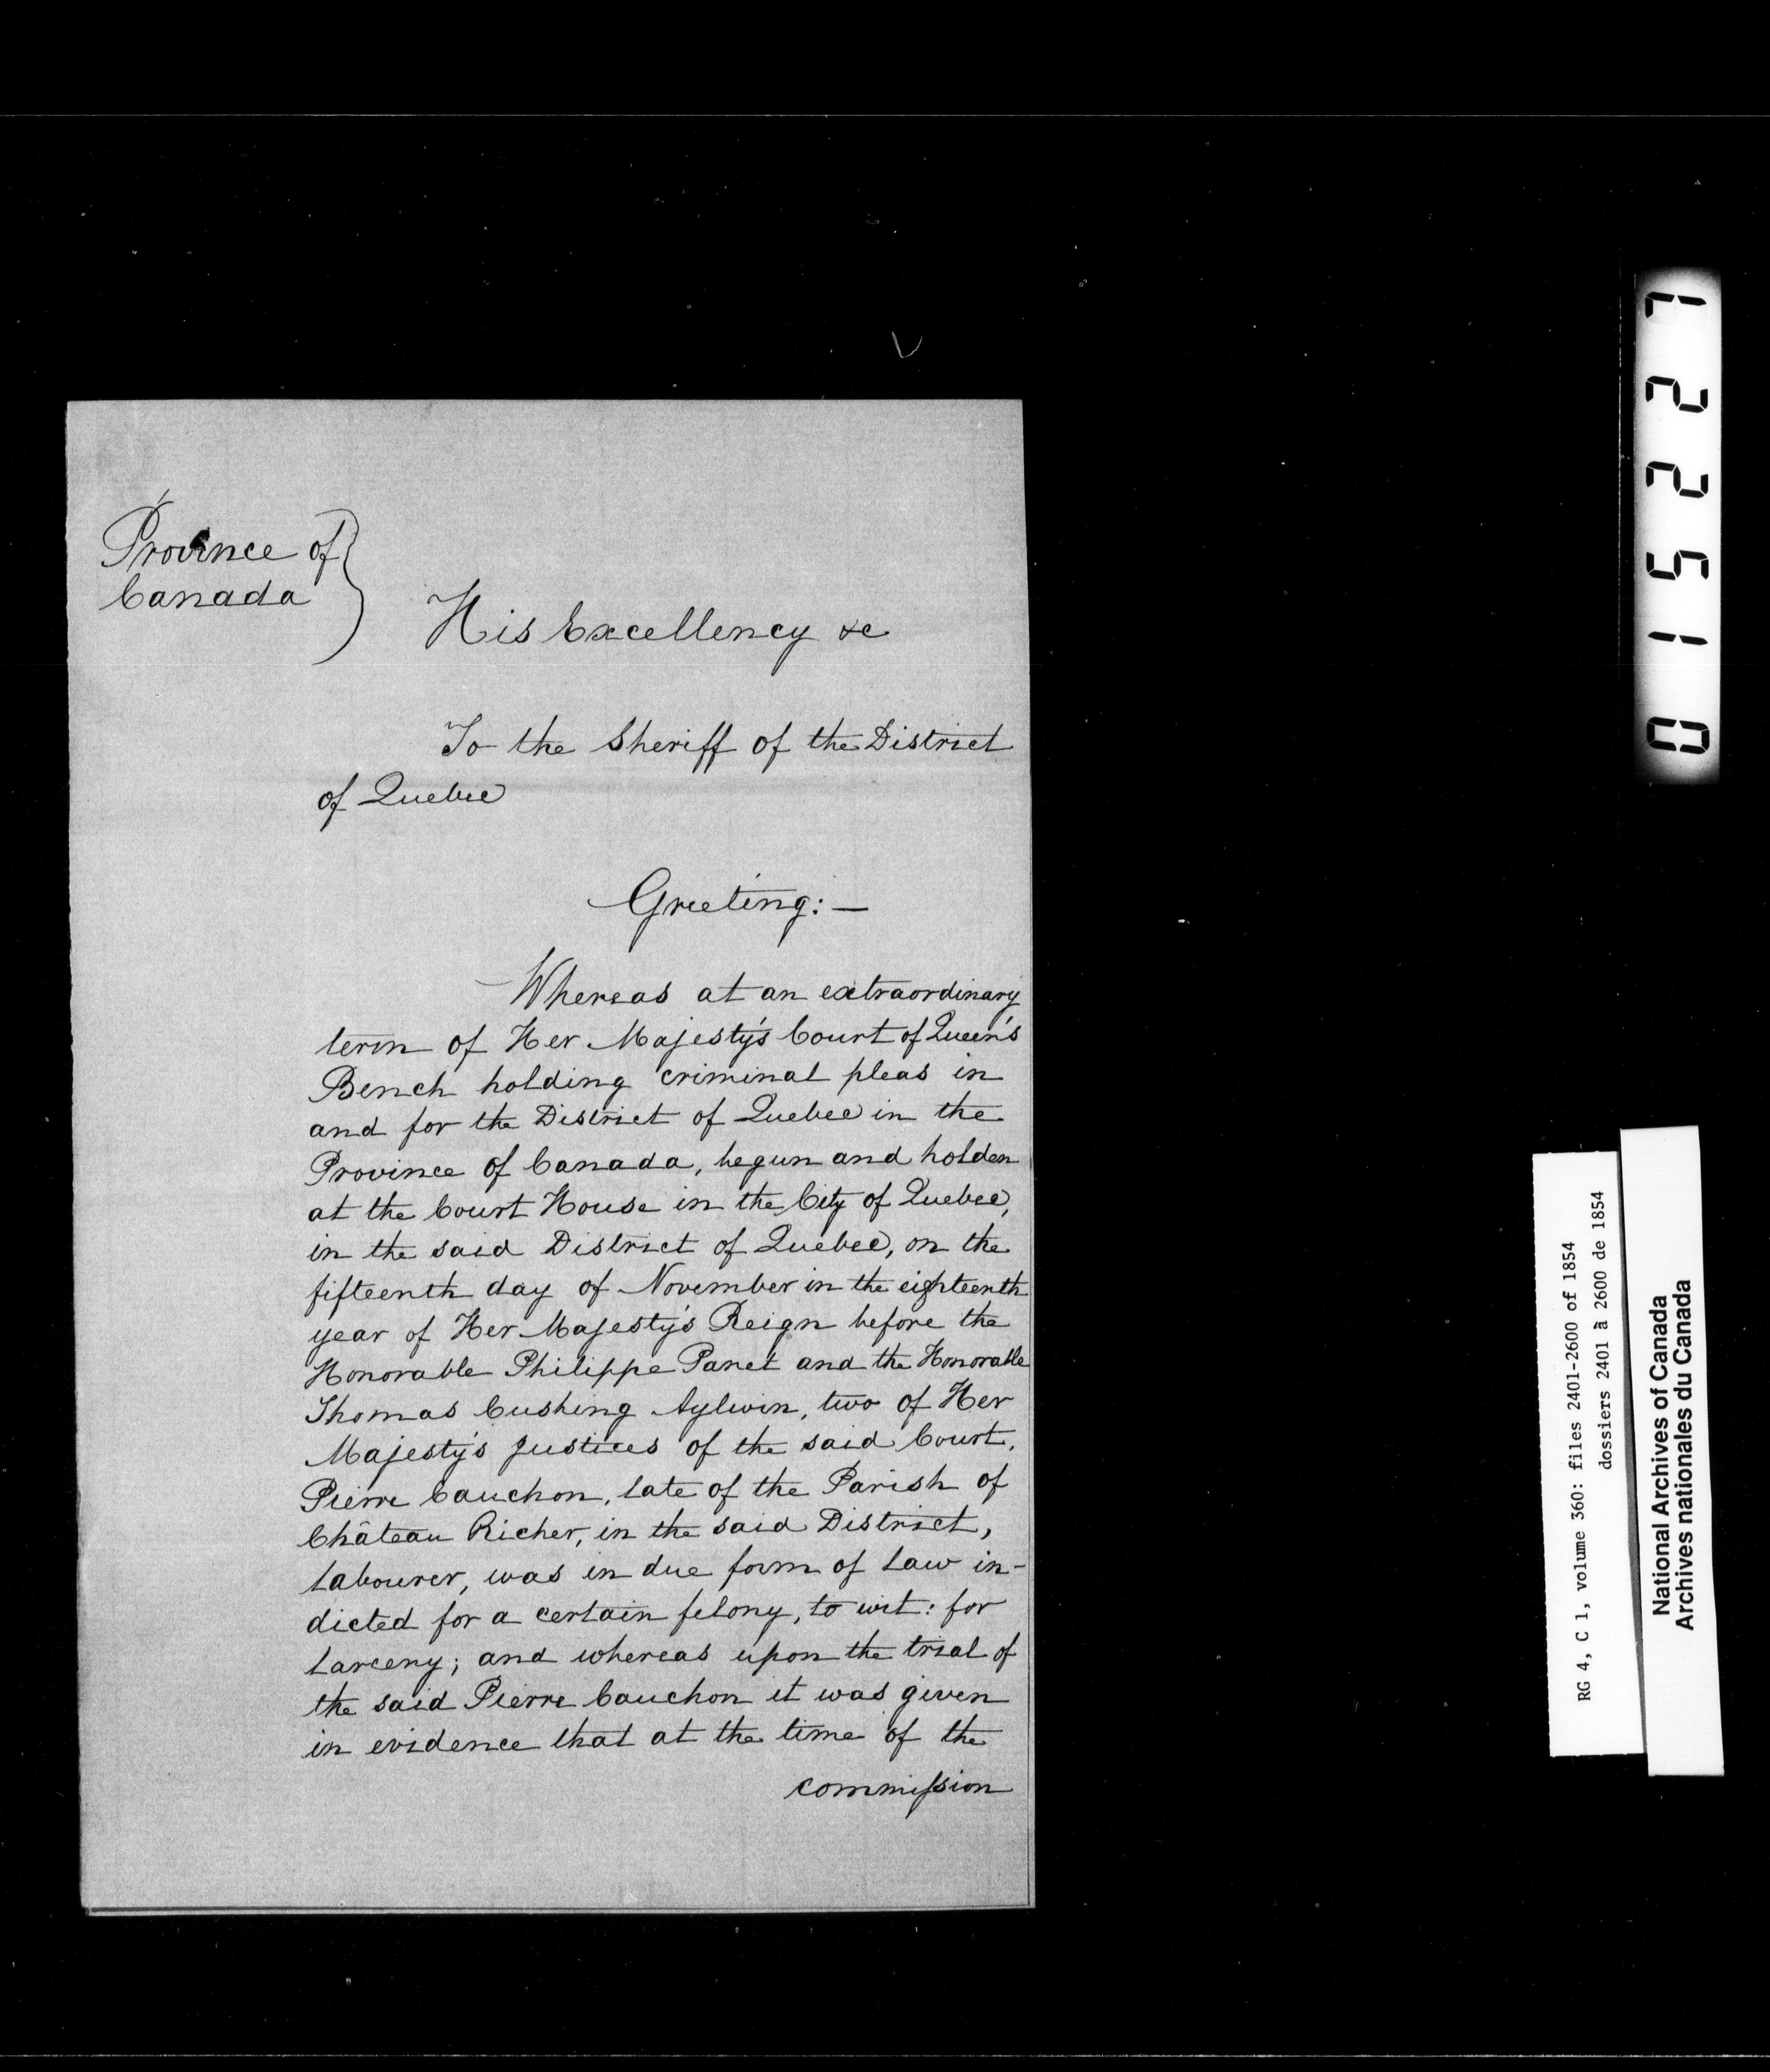 Province of
Canada
His Excellency &c
To the Sheriff of the District
of Quebec
Greeting: —
Whereas at an extraordinary
term of Her Majesty's Court of Queen's
Bench holding criminal pleas in
and for the District of Quebec in the
Province of Canada, begun and holden
at the Court House in the City of Quebec,
in the said District of Quebec, on the
fifteenth day of November in the eighteenth
year of Her Majesty's Reign before the
Honorable Philippe Panet and the Honorable
Thomas Cushing Aylwin, two of Her
Majesty's Justices of the said Court,
Pierre Cauchon, late of the Parish of
Château Richer, in the said District,
Labourer, was in due form of Law in-
dicted for a certain felony, to wit: for
Larceny; and whereas upon the trial of
the said Pierre Cauchon it was given
in evidence that at the time of the
commission
015227
RG 4, C 1, volume 360: files 2401-2600 of 1854
dossiers 2401 à 2600 de 1854
National Archives of Canada
Archives nationales du Canada